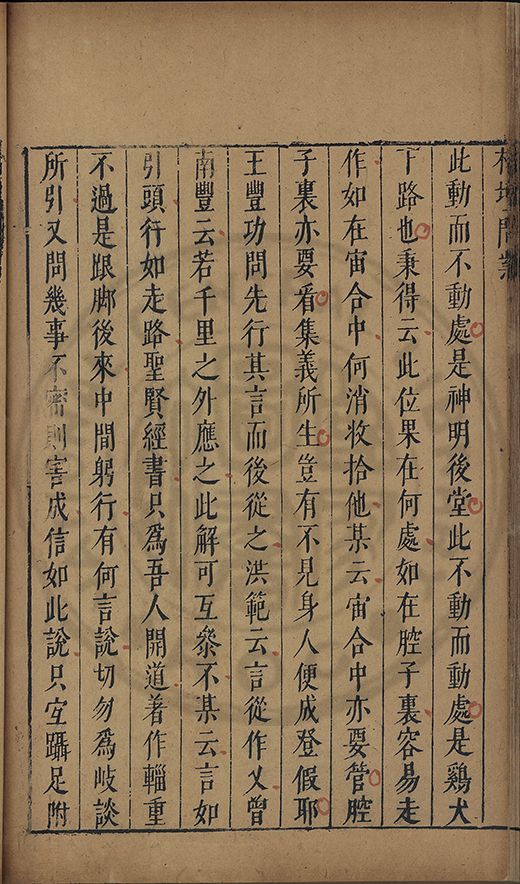 此動而不動處是神明後堂此不動而動處是鷄犬
下路也秉得云此位果在何處如在腔子裏容易走
作如在宙合中何消收拾他某云宙合中亦要管腔
子裏亦要看集義所生豈有不見身人便成登假耶
王豐功問先行其言而後從之洪範云言從作乂曾
南豐云若千里之外應之此解可互叅不某云言如
引頭行如走路聖賢經書只爲吾人開道著作輜重
不過是跟脚後來中間躬行有何言說切勿爲岐談
所引又問幾事不密則害成信如此說只宜躡足附